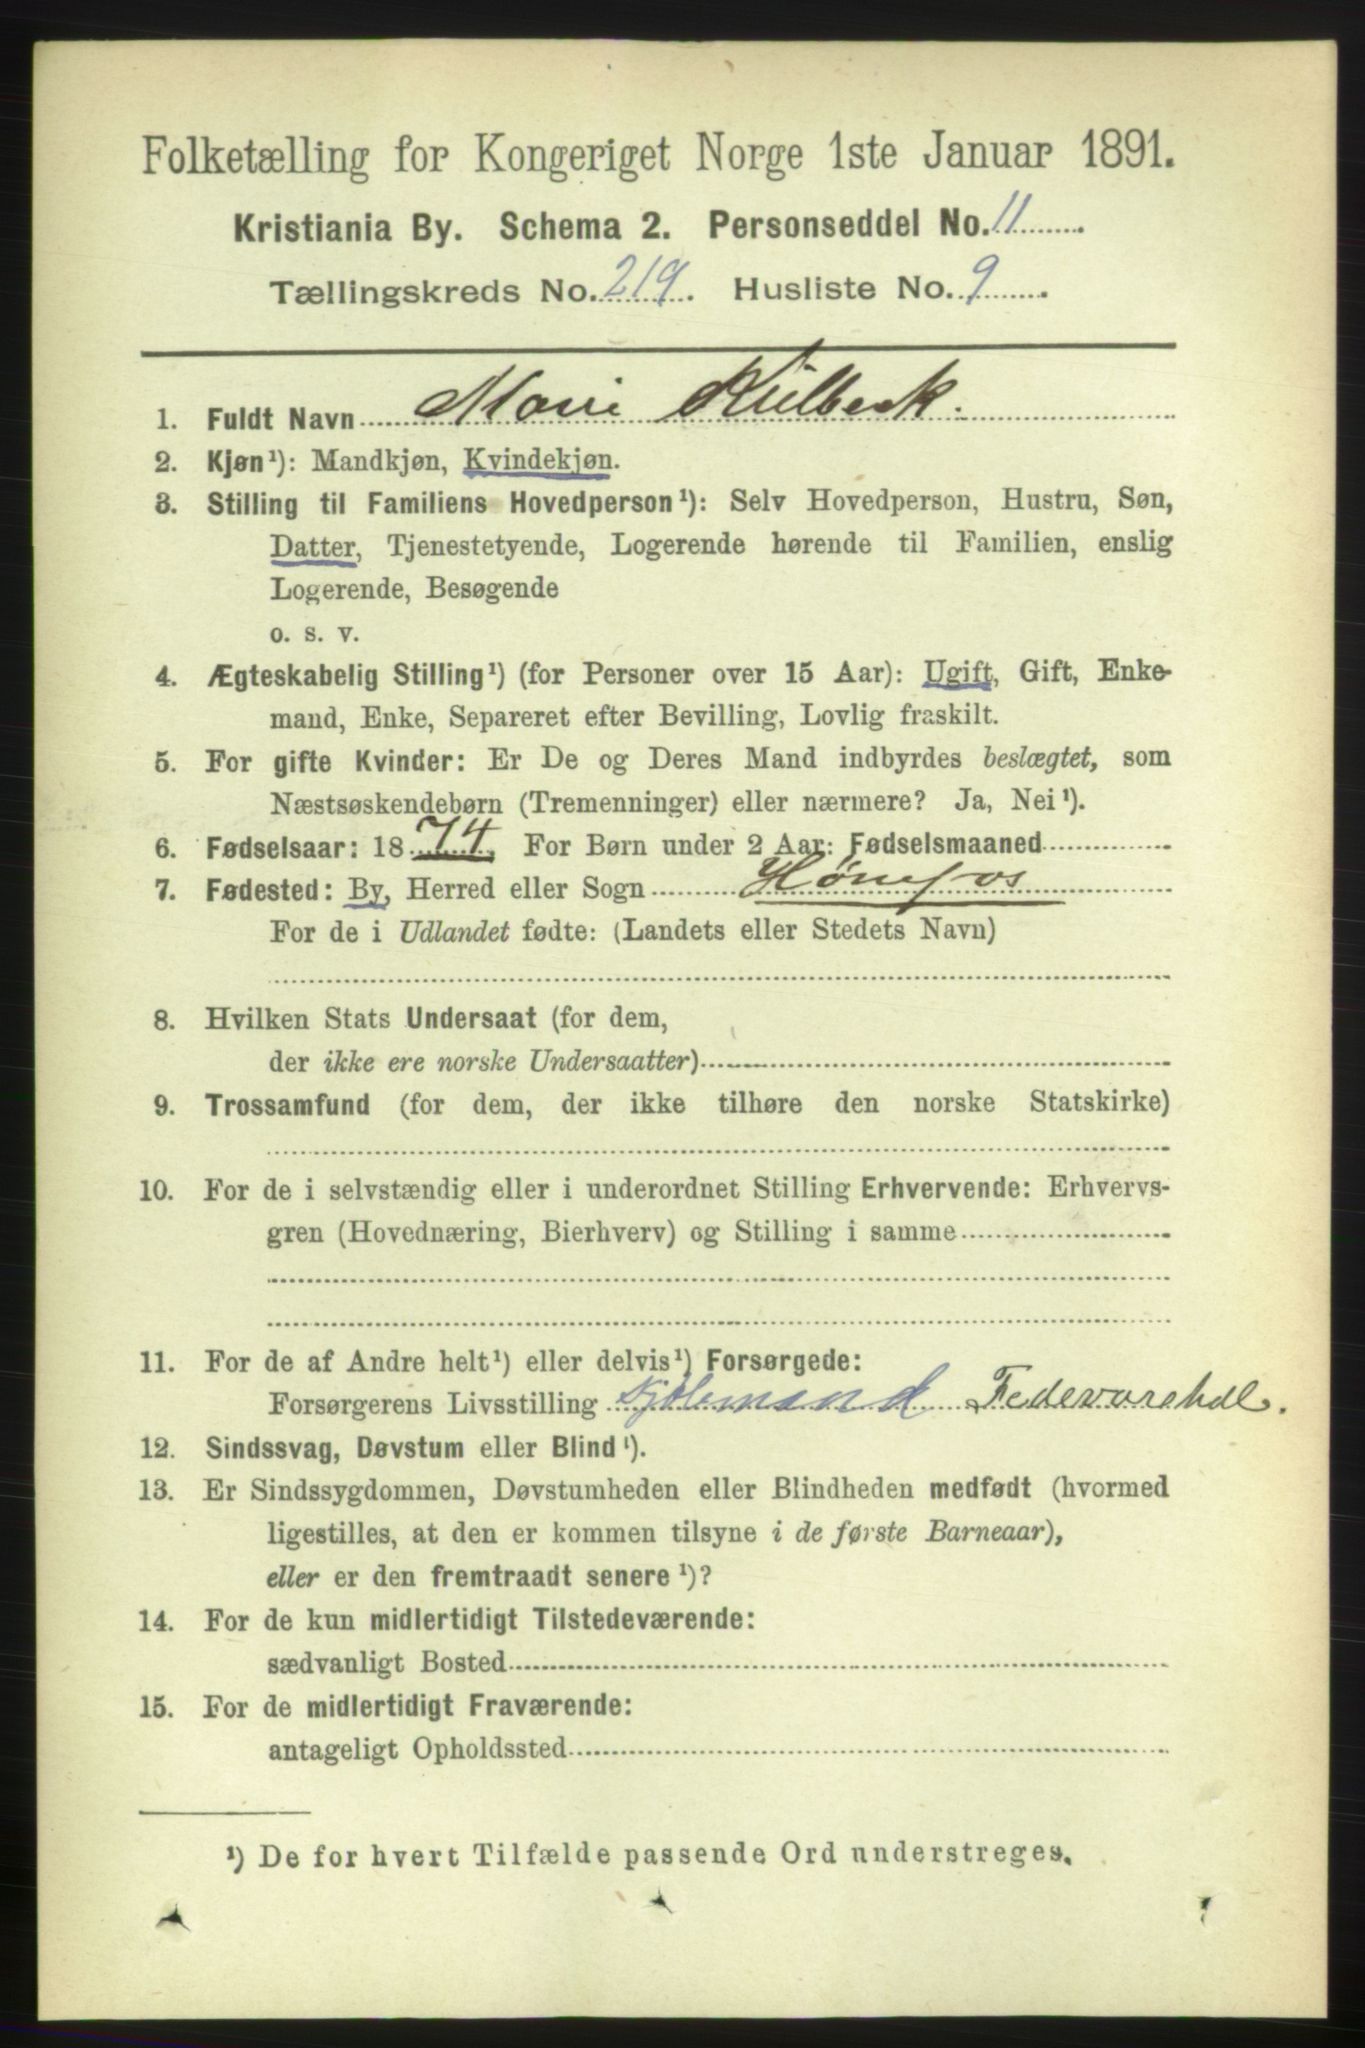 Folketælling for Kongeriget Norge 1ste Januar 1891.
Kristiania By. Schema 2. Personseddel No. 11
Tællingskreds No. 219. Husliste No. 9.
1. Fuldt Navn Marie Kulbeck.
2. Kjøn¹): Mandkjøn, Kvindekjøn.
3. Stilling til Familiens Hovedperson¹): Selv Hovedperson, Hustru, Søn,
Datter, Tjenestetyende, Logerende hørende til Familien, enslig
Logerende, Besøgende
o. s. v.
4. Ægteskabelig Stilling¹) (for Personer over 15 Aar): Ugift, Gift, Enke-
mand, Enke, Separeret efter Bevilling, Lovlig fraskilt.
5. For gifte Kvinder: Er De og Deres Mand indbyrdes beslægtet, som
Næstsøskendebørn (Tremenninger) eller nærmere? Ja, Nei¹).
6. Fødselsaar: 1874, For Børn under 2 Aar: Fødselsmaaned
7. Fødested: By, Herred eller Sogn Hønefos
For de i Udlandet fødte: (Landets eller Stedets Navn)
8. Hvilken Stats Undersaat (for dem,
der ikke ere norske Undersaatter)
9. Trossamfund (for dem, der ikke tilhøre den norske Statskirke)
10. For de i selvstændig eller i underordnet Stilling Erhvervende: Erhvervs-
gren (Hovednæring, Bierhverv) og Stilling i samme
11. For de af Andre helt¹) eller delvis¹) Forsørgede:
Forsørgerens Livsstilling Kjøbmand Fedevarehdl.
12. Sindssvag, Døvstum eller Blind¹).
13. Er Sindssygdommen, Døvstumheden eller Blindheden medfødt (hvormed
ligestilles, at den er kommen tilsyne i de første Barneaar),
eller er den fremtraadt senere¹)?
14. For de kun midlertidigt Tilstedeværende:
sædvanligt Bosted
15. For de midlertidigt Fraværende:
antageligt Opholdssted
¹) De for hvert Tilfælde passende Ord understreges.